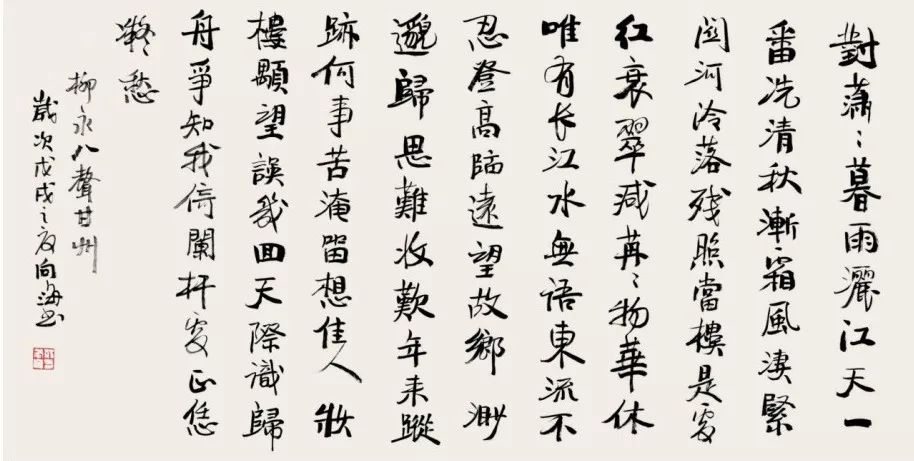 對蕭〻暮雨灑江天一
番洗清秋漸霜風淒緊
關河冷落残照當樓是處
红衰翠减苒〻物華休
唯有长江水無語東流不
忍登高臨遠望故鄉渺
邈歸思難收歎年来蹤
跡何事苦淹留想佳人妝
樓顒望誤幾回天際識歸
舟爭知我倚闌杆處正恁
凝愁
柳永八聲甘州
歲次戊戌之夏向海书